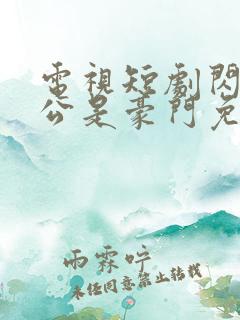 電視短劇閃
公是豪門免
雨霖咛
未经同意禁止转载